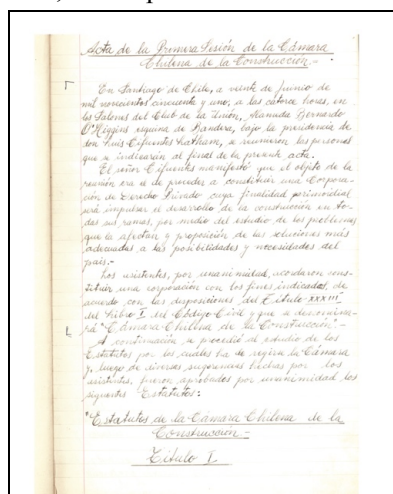 Acta de la Primera Sesión de la Cámara
Chilena de la Construcción.-
En Santiago de Chile, a veinte de Junio de
mil novecientos cincuenta y uno, a las catorce horas, en
los Salones del Club de la Unión, Alameda Bernardo
O'Higgins esquina de Bandera, bajo la presidencia de
don Luis Cifuentes Latham, se reunieron las personas
que se indicarán al final de la presente acta.
El señor Cifuentes manifestó que el objeto de la
reunión era el de proceder a constituir una Corpora-
ción de Derecho Privado cuya finalidad primordial
será impulsar el desarrollo de la construcción en to-
das sus ramas, por medio del estudio de los problemas
que la afectan y proposición de las soluciones más
adecuadas a las posibilidades y necesidades del
país.-
Los asistentes, por unanimidad, acordaron cons-
tituir una corporación con los fines indicados, de
acuerdo con las disposiciones del Título XXXIII
del Libro I del Código Civil y que se denomina-
rá "Cámara Chilena de la Construcción".-
A continuación se procedió al estudio de los
Estatutos por los cuales ha de regirse la Cámara
y, luego de diversas sugerencias hechas por los
asistentes, fueron aprobados por unanimidad los
siguientes Estatutos:
"Estatutos de la Cámara Chilena de la
Construcción -
Título I